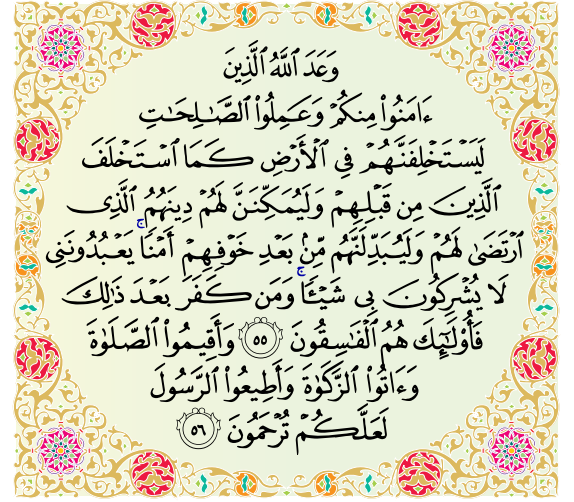 وَعَدَ ٱللَّهُ ٱلَّذِينَ
ءَامَنُوا۟ مِنكُمْ وَعَمِلُوا۟ ٱلصَّـٰلِحَـٰتِ
لَيَسْتَخْلِفَنَّهُمْ فِى ٱلْأَرْضِ كَمَا ٱسْتَخْلَفَ
ٱلَّذِينَ مِن قَبْلِهِمْ وَلَيُمَكِّنَنَّ لَهُمْ دِينَهُمُ ٱلَّذِى
ٱرْتَضَىٰ لَهُمْ وَلَيُبَدِّلَنَّهُم مِّنۢ بَعْدِ خَوْفِهِمْ أَمْنًا ۚ يَعْبُدُونَنِى
لَا يُشْرِكُونَ بِى شَيْـًٔا ۚ وَمَن كَفَرَ بَعْدَ ذَٰلِكَ
فَأُو۟لَـٰٓئِكَ هُمُ ٱلْفَـٰسِقُونَ ٥٥ وَأَقِيمُوا۟ ٱلصَّلَوٰةَ
وَءَاتُوا۟ ٱلزَّكَوٰةَ وَأَطِيعُوا۟ ٱلرَّسُولَ
لَعَلَّكُمْ تُرْحَمُونَ ٥٦